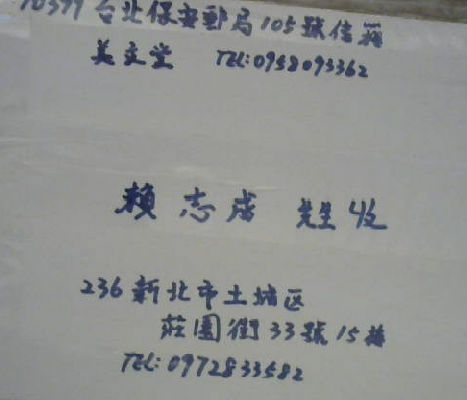 10399 台北保安郵局105號信箱
美文堂 TEL:0958093362
賴志成 先生 收
236 新北市土城区
莊園街33號15樓
TEL:0972833582